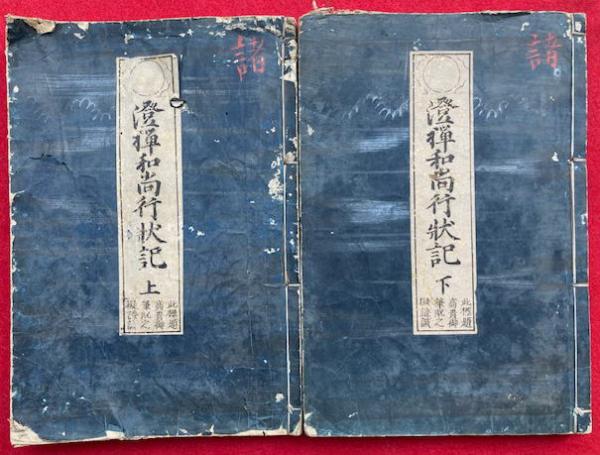 諸
澄禅和尚行状記 上
此標題
高貴御
筆也之
諸
澄禅和尚行状記 下
此標題
高貴御
筆也之